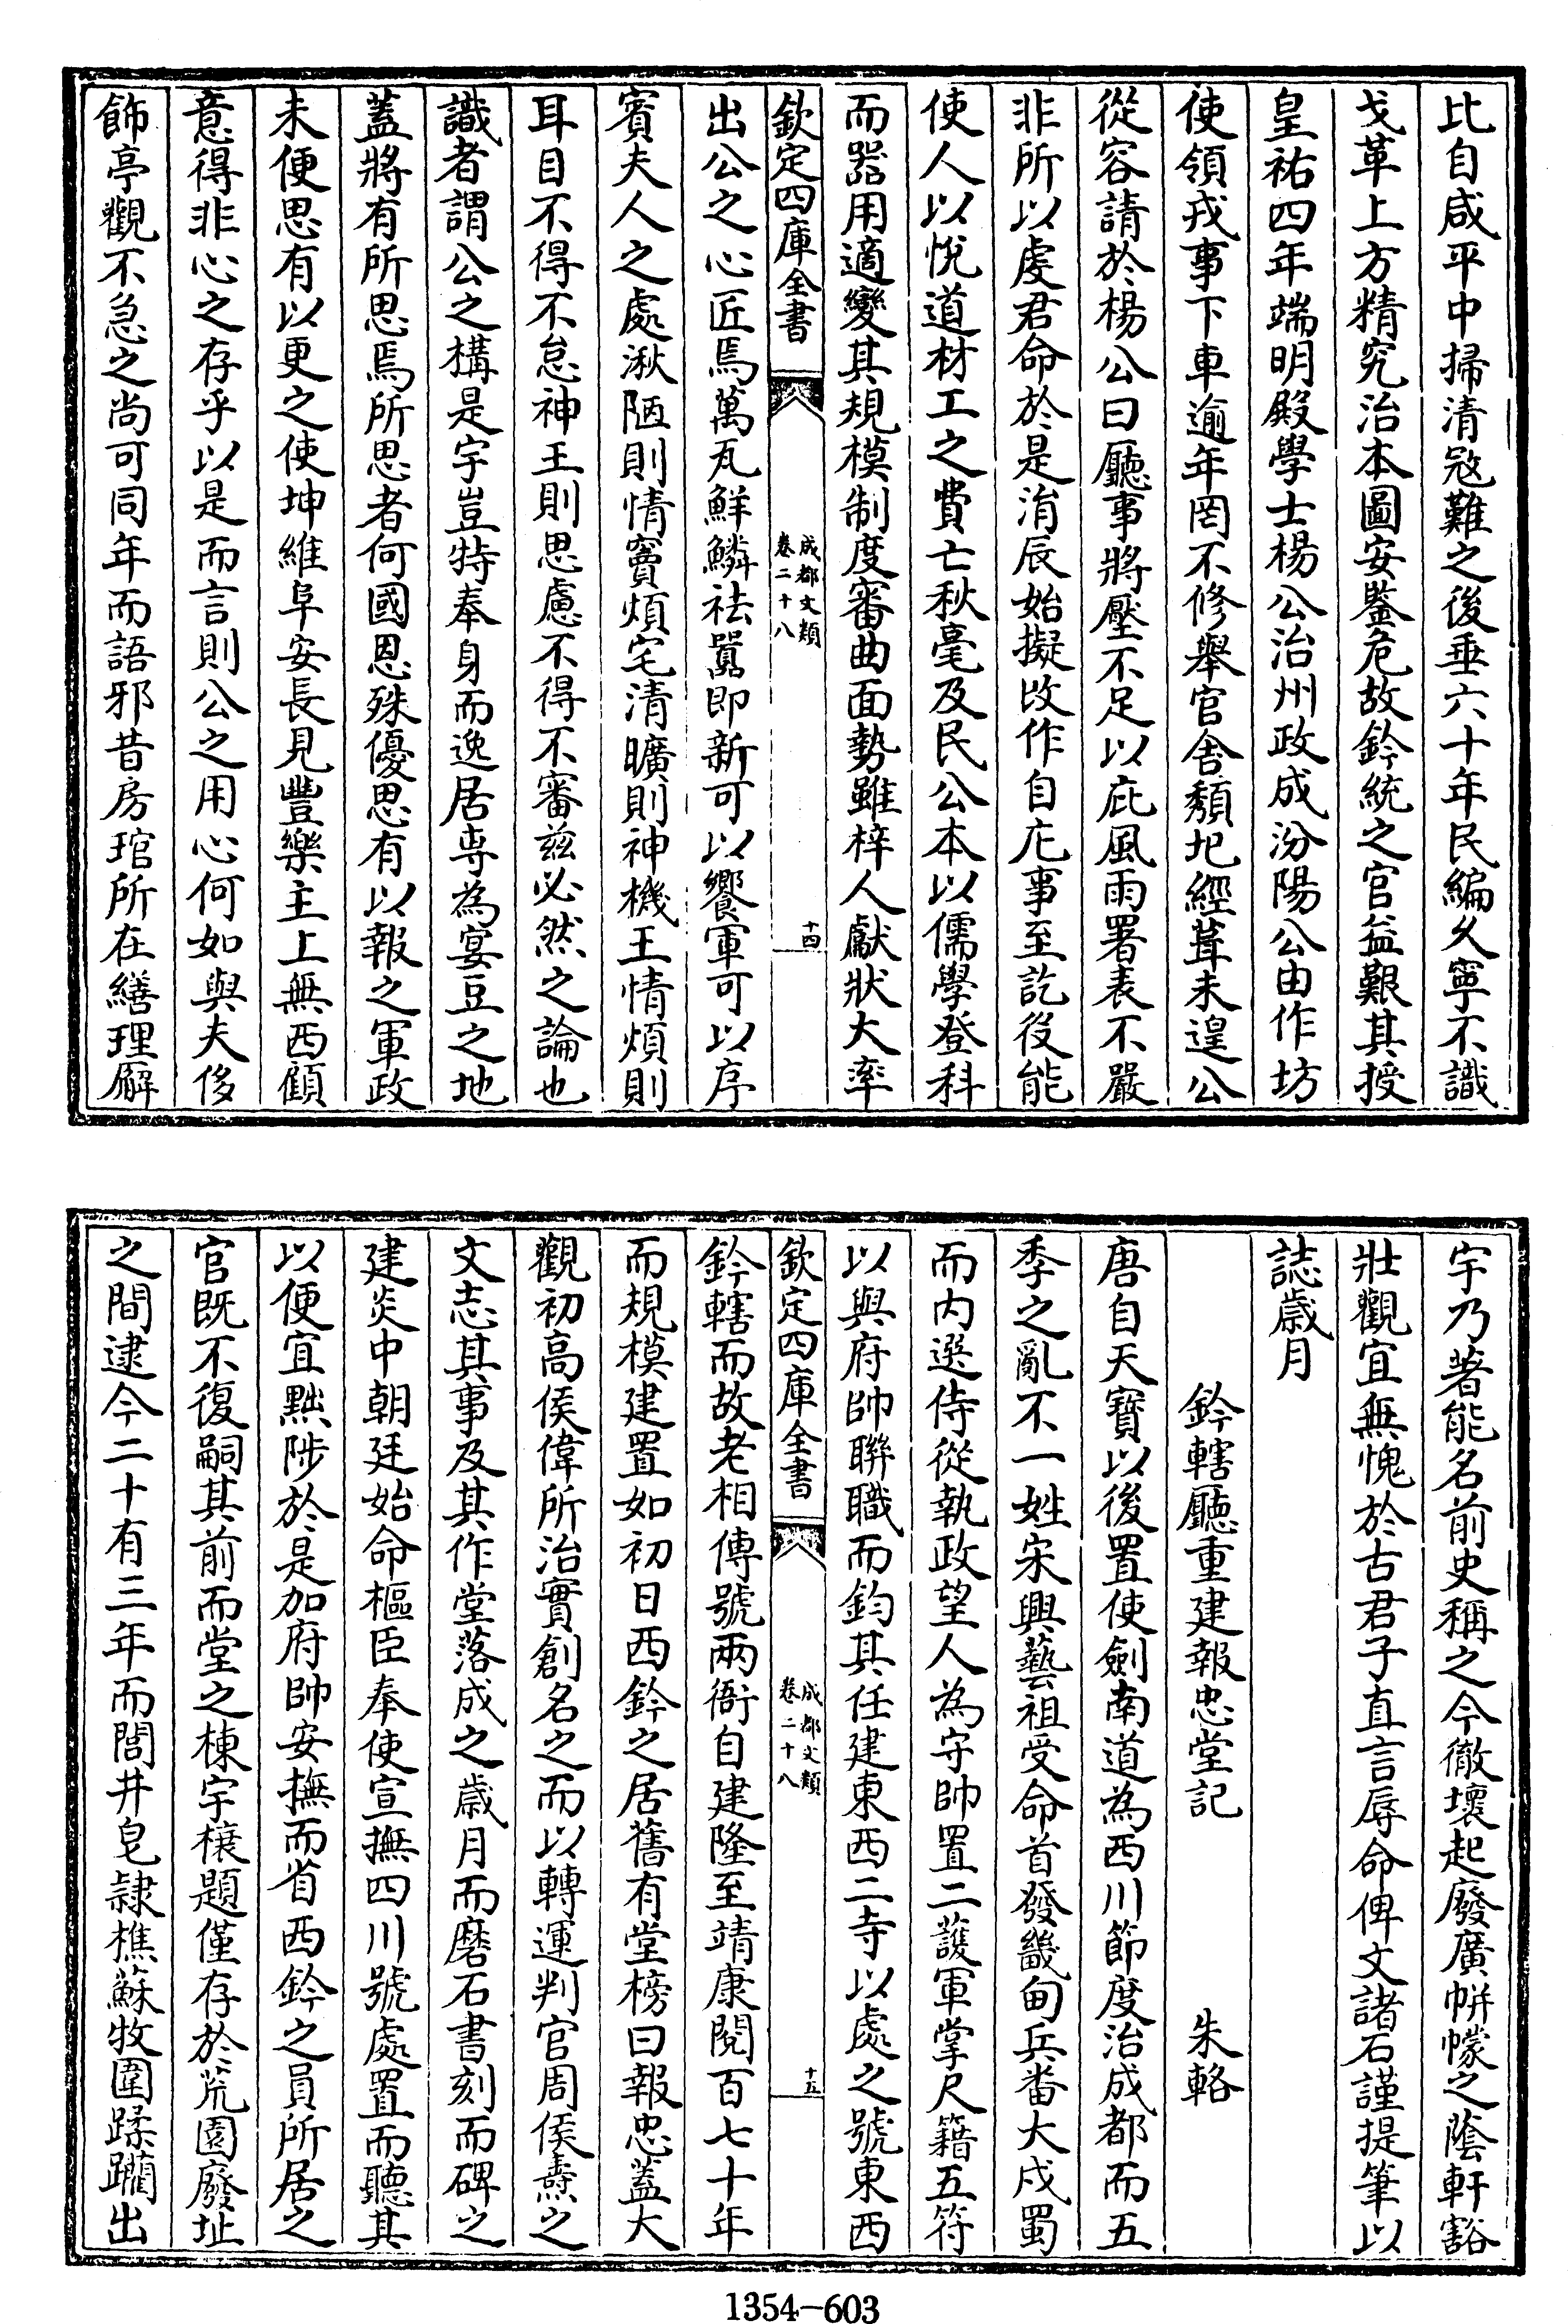 比自咸平中掃清冦難之後垂六十年民編久寧不識
戈革上方精究治本圖安鑒危故鈐統之官益艱其授
皇祐四年端明殿學士楊公治州政成汾陽公由作坊
使領戎事下車逾年罔不修舉官舍頽圮經葺未遑公
從容請於楊公曰廳事將壓不足以庇風雨署表不嚴
非所以處君命於是涓辰始擬改作自庀事至訖役能
使人以悅道材工之費亡秋毫及民公本以儒學登科
而器用適變其規模制度審曲面勢雖梓人獻狀大率
欽定四庫全書
成都文類
卷二十八
十四
出公之心匠焉萬瓦鮮鱗祛嚚即新可以饗軍可以序
賓夫人之處湫陋則情竇煩宅清曠則神機王情煩則
耳目不得不怠神王則思慮不得不審兹必然之論也
識者謂公之構是宇豈特奉身而逸居専為宴豆之地
蓋將有所思焉所思者何國恩殊優思有以報之軍政
未便思有以更之使坤維阜安長見豐樂主上無西顧
意得非心之存乎以是而言則公之用心何如與夫侈
飾亭觀不急之尚可同年而語邪昔房琯所在繕理廨
宇乃著能名前史稱之今徹壞起廢廣帲幪之蔭軒豁
壯觀宜無愧於古君子直言辱命俾文諸石謹提筆以
誌歲月
鈐轄廳重建報忠堂記 朱輅
唐自天寶以後置使劍南道為西川節度治成都而五
季之亂不一姓宋興藝祖受命首發畿甸兵畨大戍蜀
而内選侍從執政望人為守帥置二護軍掌尺籍五符
以與府帥聯職而鈞其任建東西二寺以處之號東西
欽定四庫全書
成都文類
卷二十八
十五
鈐轄而故老相傳號兩衙自建隆至靖康閱百七十年
而規模建置如初日西鈐之居舊有堂榜曰報忠蓋大
觀初高侯偉所治實創名之而以轉運判官周侯燾之
文志其事及其作堂落成之歲月而磨石書刻而碑之
建炎中朝廷始命樞臣奉使宣撫四川號處置而聽其
以便宜黜陟於是加府帥安撫而省西鈐之員所居之
官既不復嗣其前而堂之棟宇榱題僅存於荒園廢址
之間逮今二十有三年而閭井皂隷樵蘇牧圉蹂躪出
1354-603